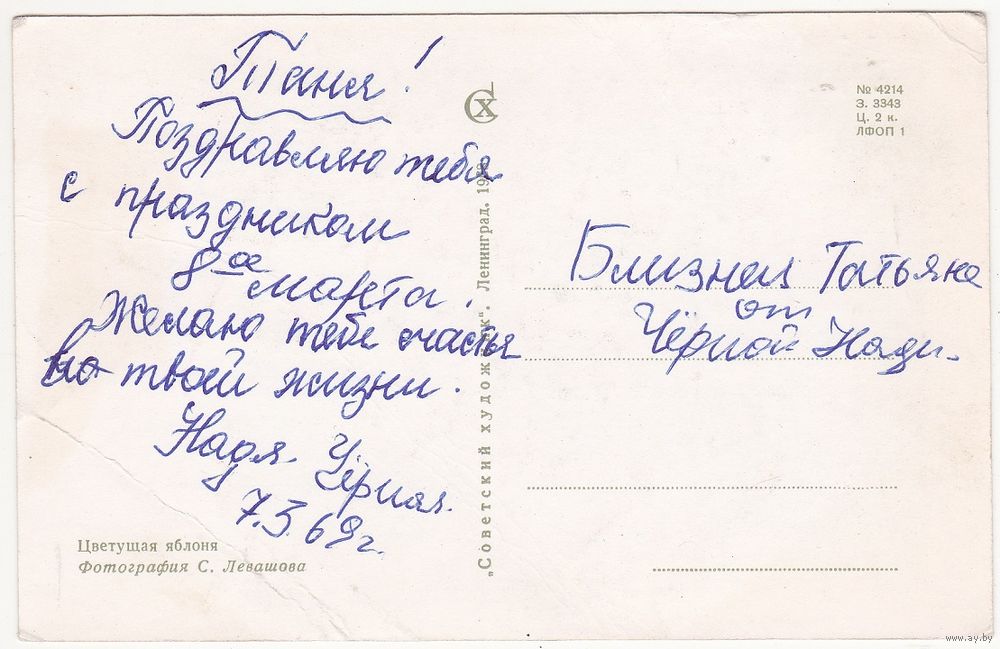 Таня!
Поздравляю тебя
с праздником
8ое
марта!
Желаю тебе счастья
во твоей жизни.
Надя Чёрная.
7.3.69г.
Цветущая яблоня
Фотография С. Левашова
СХ
„Советский художник“. Ленинград. 19
№ 4214
З. 3343
Ц. 2 к.
ЛФОП 1
Татьяне
от
Чёрной Нади.
www.ay.by